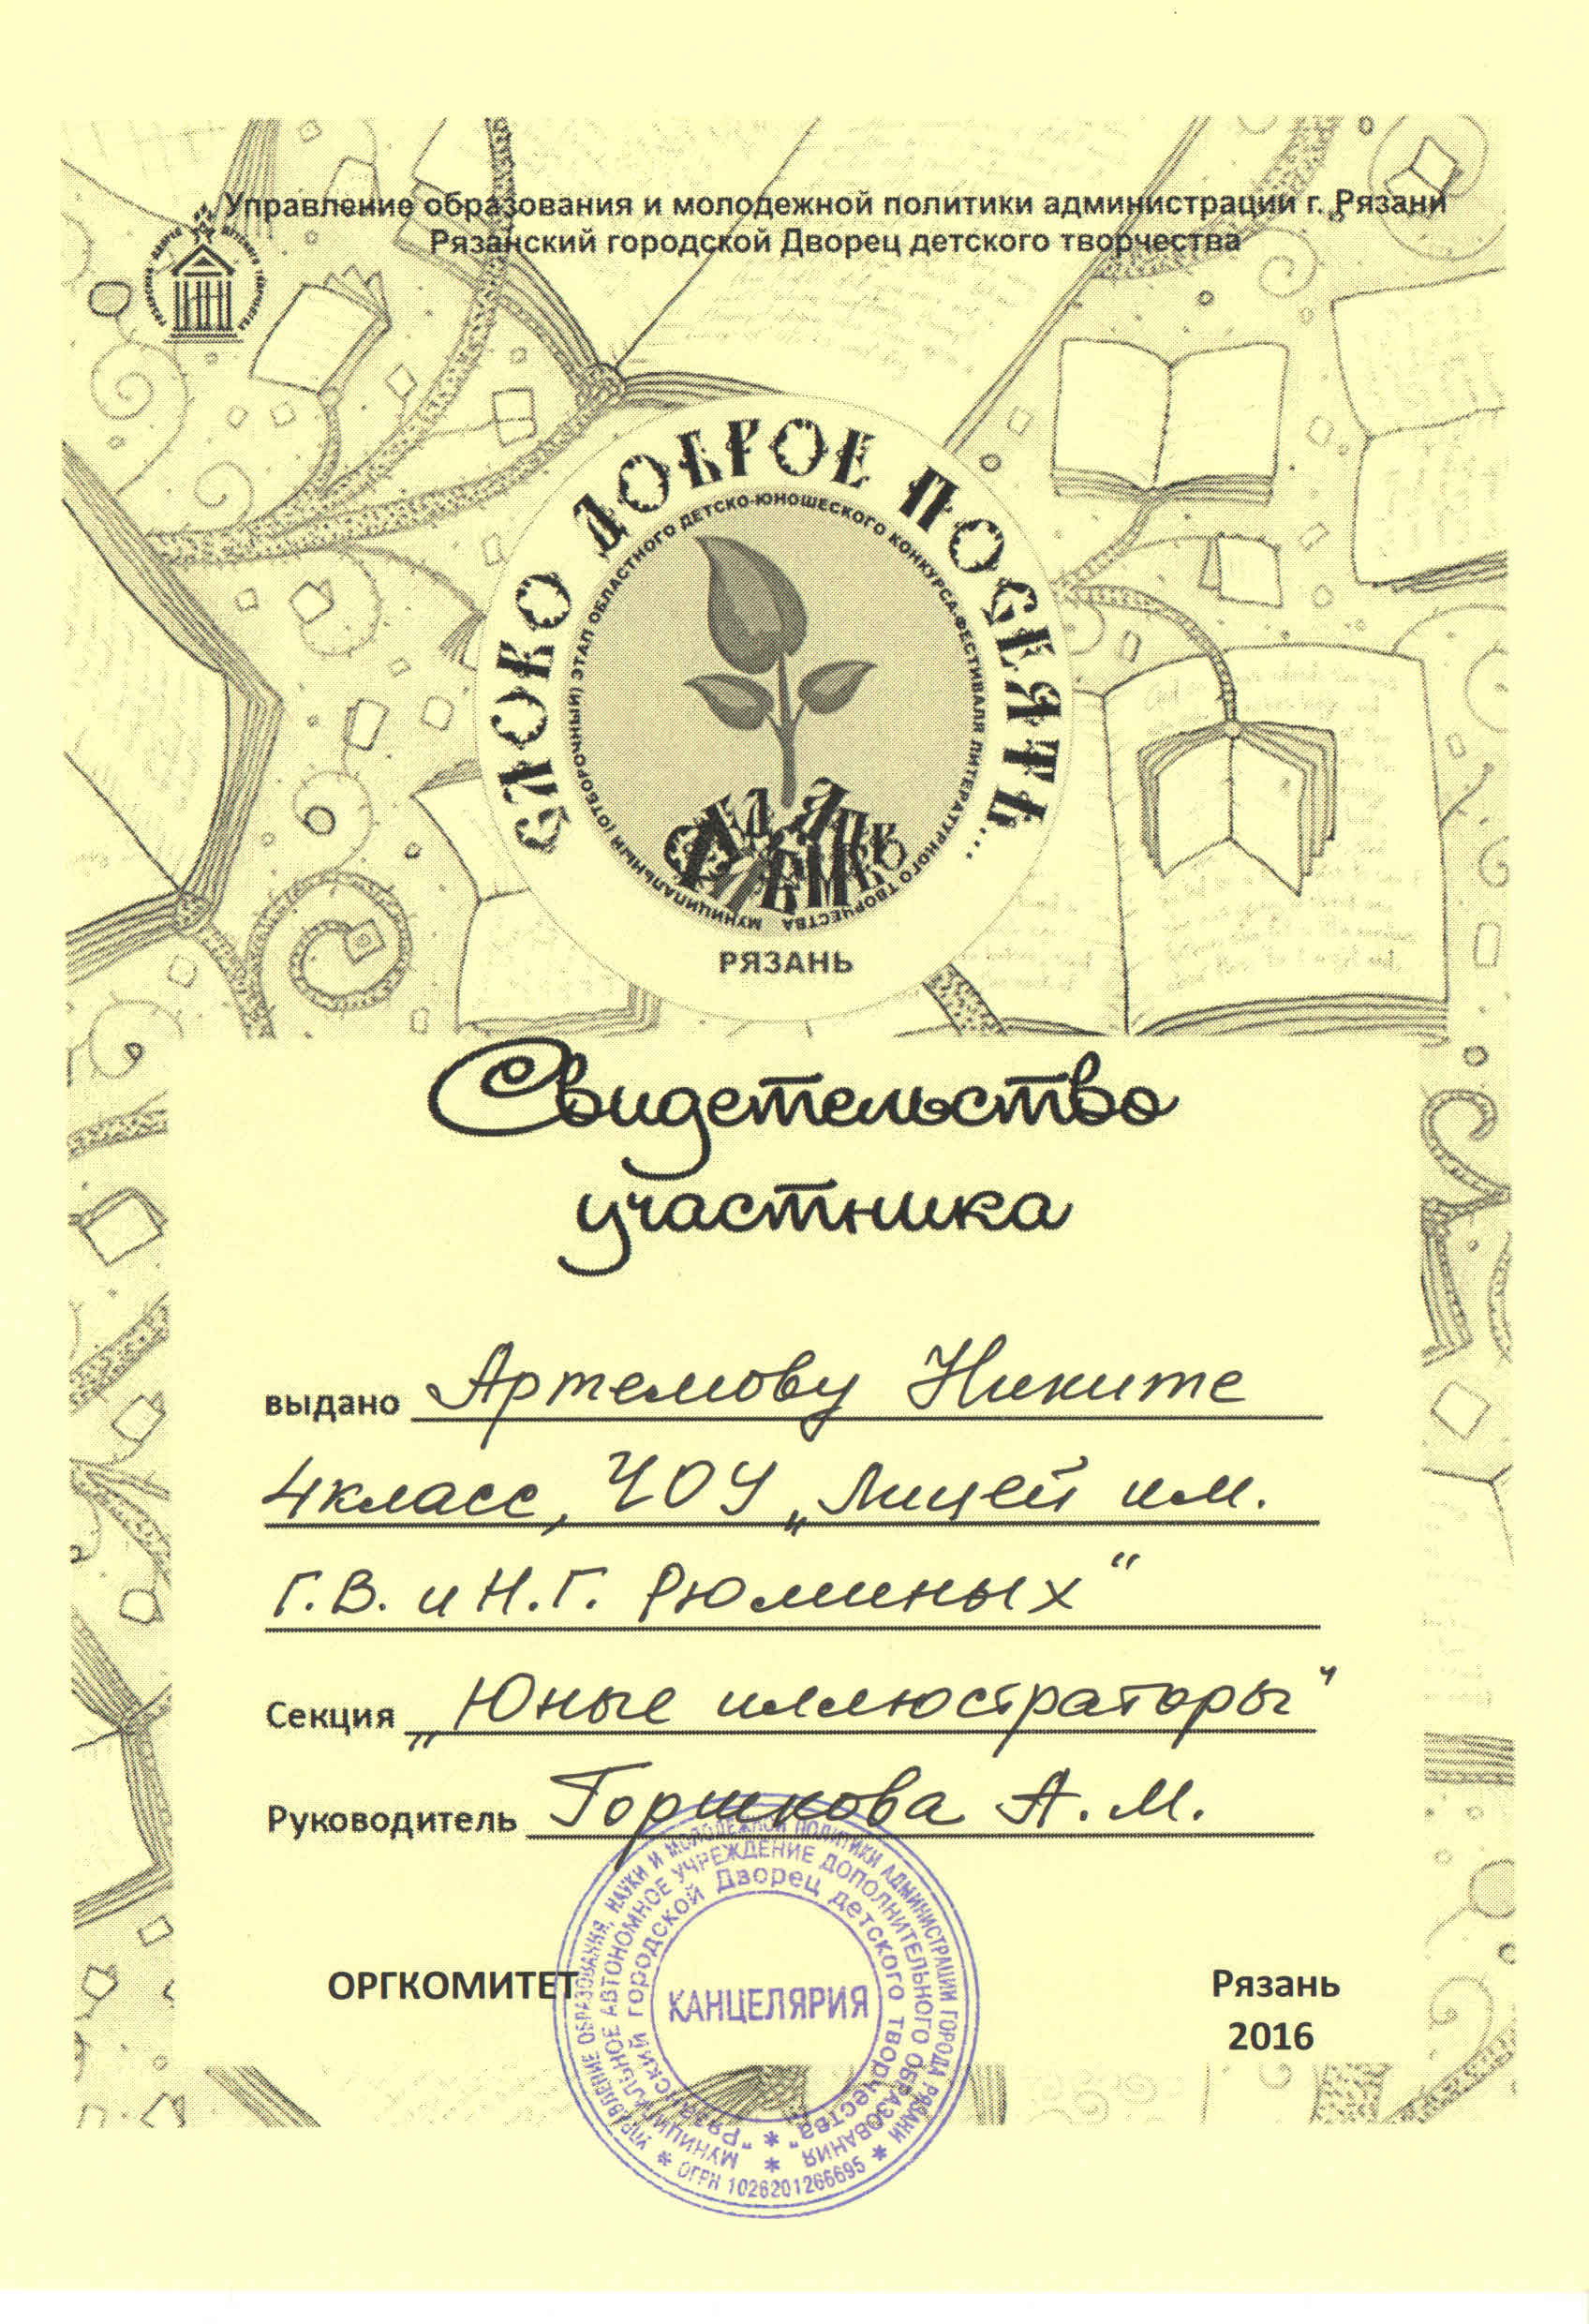 Управление образования и молодежной политики администрации г. Рязани
Рязанский городской Дворец детского творчества
СЛОВО ДОБРОЕ ПОСЕЯТЬ...
МУНИЦИПАЛЬНЫЙ (ОТБОРОЧНЫЙ) ЭТАП ОБЛАСТНОГО ДЕТСКО-ЮНОШЕСКОГО КОНКУРСА-ФЕСТИВАЛЯ ЛИТЕРАТУРНОГО ТВОРЧЕСТВА
РЯЗАНЬ
Свидетельство
участника
выдано Артемову Никите
4класс, ЧОУ „Лицей им.
Г.В. и Н.Г. Рюминых“
Секция „Юные иллюстраторы“
Руководитель Горшкова А.М.
УПРАВЛЕНИЕ ОБРАЗОВАНИЯ, НАУКИ И МОЛОДЕЖНОЙ ПОЛИТИКИ АДМИНИСТРАЦИИ ГОРОДА РЯЗАНИ * ОГРН 1026201266695 *
МУНИЦИПАЛЬНОЕ АВТОНОМНОЕ УЧРЕЖДЕНИЕ ДОПОЛНИТЕЛЬНОГО ОБРАЗОВАНИЯ *
"Рязанский городской Дворец детского творчества" *
КАНЦЕЛЯРИЯ
ОРГКОМИТЕТ
Рязань
2016